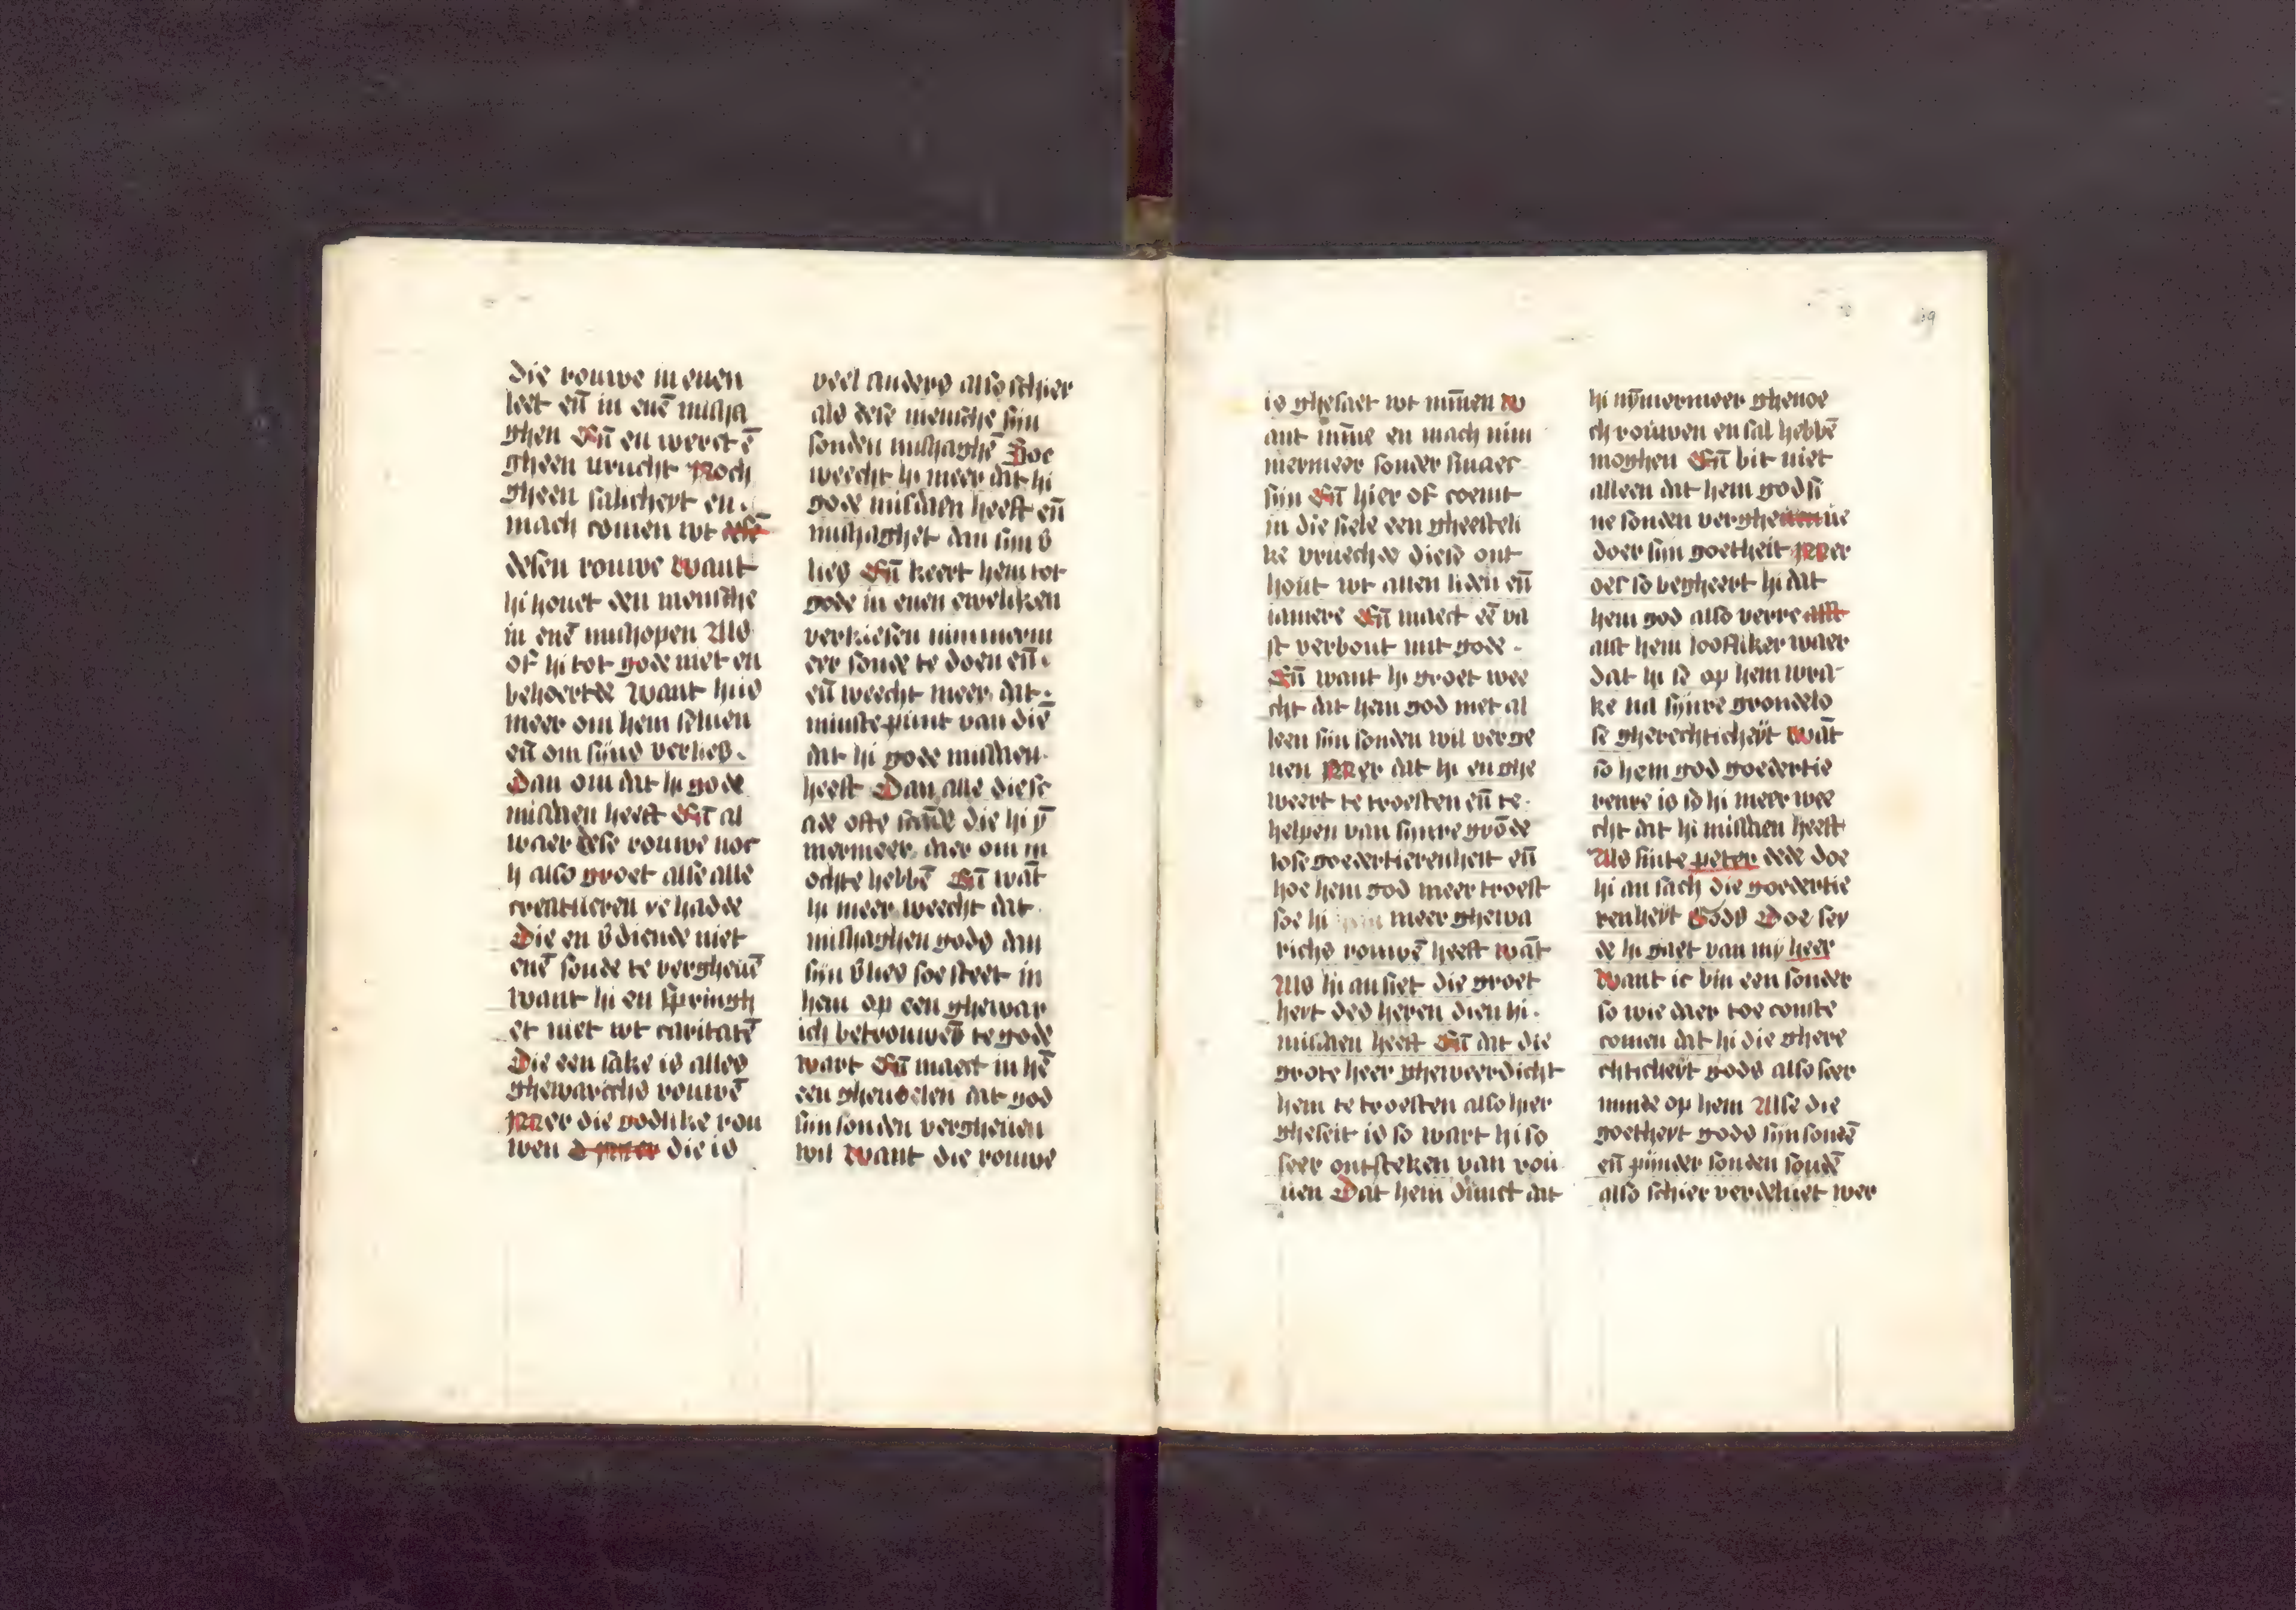 die rouwe in enen
leet eñ in enē misha
ghen Eñ en werct ē
gheen vrucht Noch
gheen salicheyt en
mach comen wt dese
desen rouwe Want
hi houet den mensche
in enē mishopen Als
of hi tot gode niet en
behoerde Want hijs
meer om hem seluen
eñ om sijns verlies.
Dan om dat hi gode
misdaen heeft Eñ al
waer dese rouwe noc
h also groet alse alle
creatueren ye hadde
Die en v̄diende niet
enē sonde te vergheuē
want hi en springh
et niet wt caritatē
Die een sake is alles
ghewarichs rouwē
Mer die godlike rou
wen die is
veel anders also schier
als dese mensche sijn
sonden mishaghē Soe
weecht hi meer dat hi
gode misdaen heeft eñ
mishaghet dan sijn v̄
lies Eñ keert hem tot
gode in enen eweliken
verkiesen nimmerm
eer sonde te doen eñ.
eñ weecht meer dat
minste punt van diē
dat hi gode misdaen
heeft Dan alle die sc
ade ofte scāde die hi ȳ
mermeer daer om m
ochte hebbē Eñ wāt
hi meer weecht dat
mishaghen gods dan
sijn v̄lies soe steet in
hem op een ghewar
ich betrouwen te gode
wart Eñ maect in hē
een ghevoelen dat god
sijn sonden vergheuen
wil Want die rouwe
is ghesaet wt minnen W
ant minne en mach nim
mermeer sonder smaec
sijn Eñ hier of coemt
in die siele een gheesteli
ke vruechde diese ont
hout wt allen liden eñ
iamere Eñ maect eē va
st verbont mit gode.
Eñ want hi groet wee
cht dat hem god niet al
leen sijn sonden wil verge
uen Mer dat hi en ghe
weert te troesten eñ te
helpen van sijnre grōde
lose goedertierenheit eñ
hoe hem god meer troest
soe hi meer ghewa
richs rouwē heeft wāt
Als hi ansiet die groet
heyt des heren dien hi.
misdaen heeft Eñ dat die
grote heer gheweerdicht
hem te troesten also hier
gheseit is so wart hi so
seer ontsteken van rou
uen Dat hem dunct dat
hi nȳmermeer ghenoe
ch rouwen en sal hebbē
moghen Eñ bit niet
alleen dat hem god si
ne sonden verghe ue
doer sijn goetheit Mer
oec so begheert hi dat
hem god also verre alst
alst hem loofliker waer
dat hi se op hem wra
ke na sijnre grondelo
se gherechticheyt Wāt
so hem god goedertie
renre is so hi meer wee
cht dat hi misdaen heeft
Als sinte peter dede doe
hi an sach die goedertie
renheyt Gods Doe sey
de hi gaet van my heer
Want ic bin een sonder
so wie daer toe conste
comen dat hi die ghere
chticheyt gods also seer
minde op hem Alse die
goetheyt gods sijn sondē
eñ sijnder sonden soudē
also schier verdeluet wer